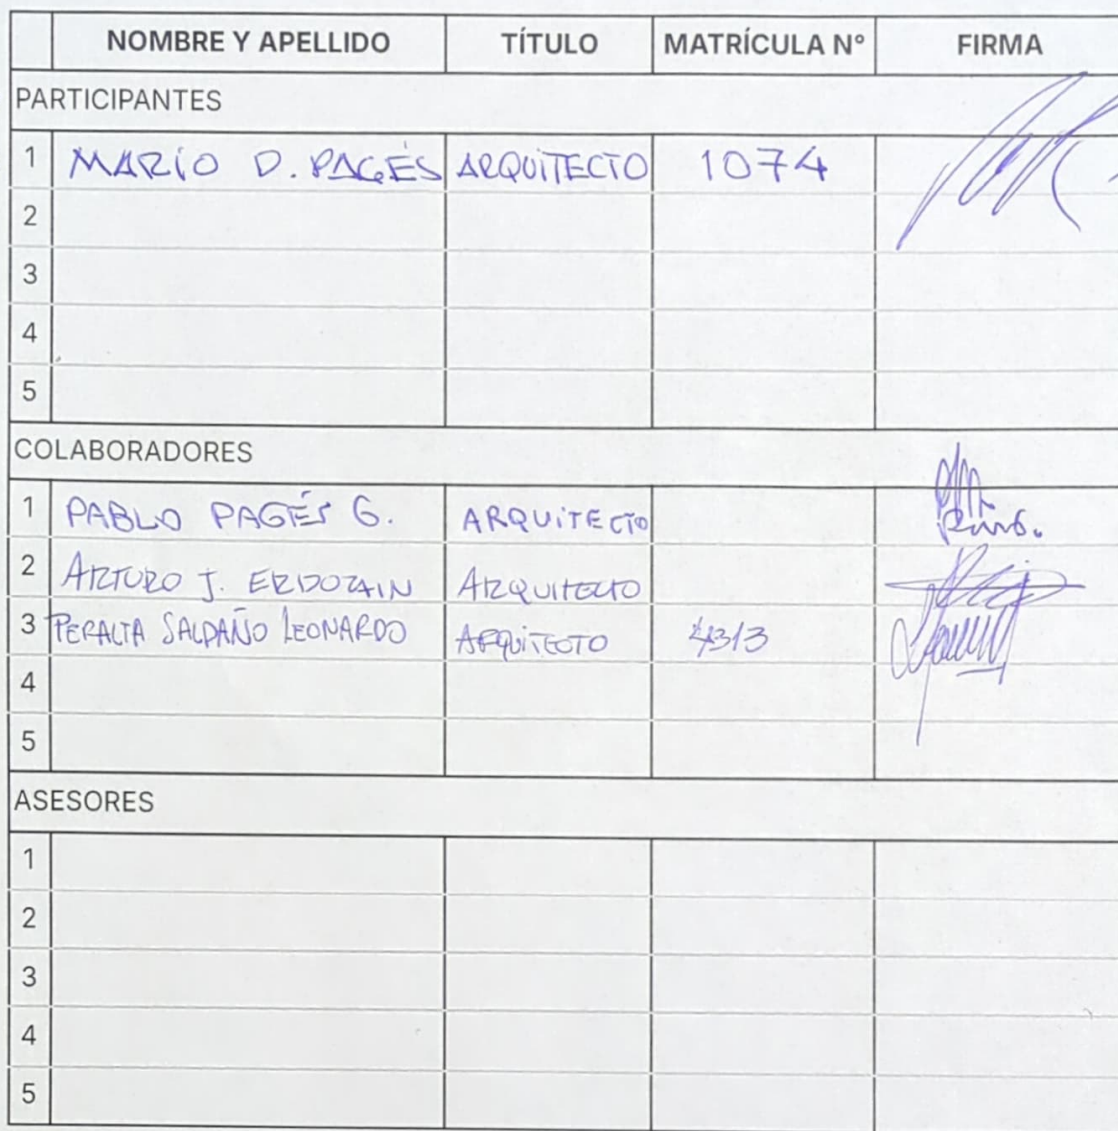 NOMBRE Y APELLIDO TÍTULO MATRÍCULA N° FIRMA
PARTICIPANTES
1 MARIO D. PAGÉS ARQUITECTO 1074
2
3
4
5
COLABORADORES
1 PABLO PAGÉS G. ARQUITECTO
2 ARTURO J. ERDOZAIN ARQUITECTO
3 PERALTA SALDAÑO LEONARDO ARQUITECTO 4313
4
5
ASESORES
1
2
3
4
5